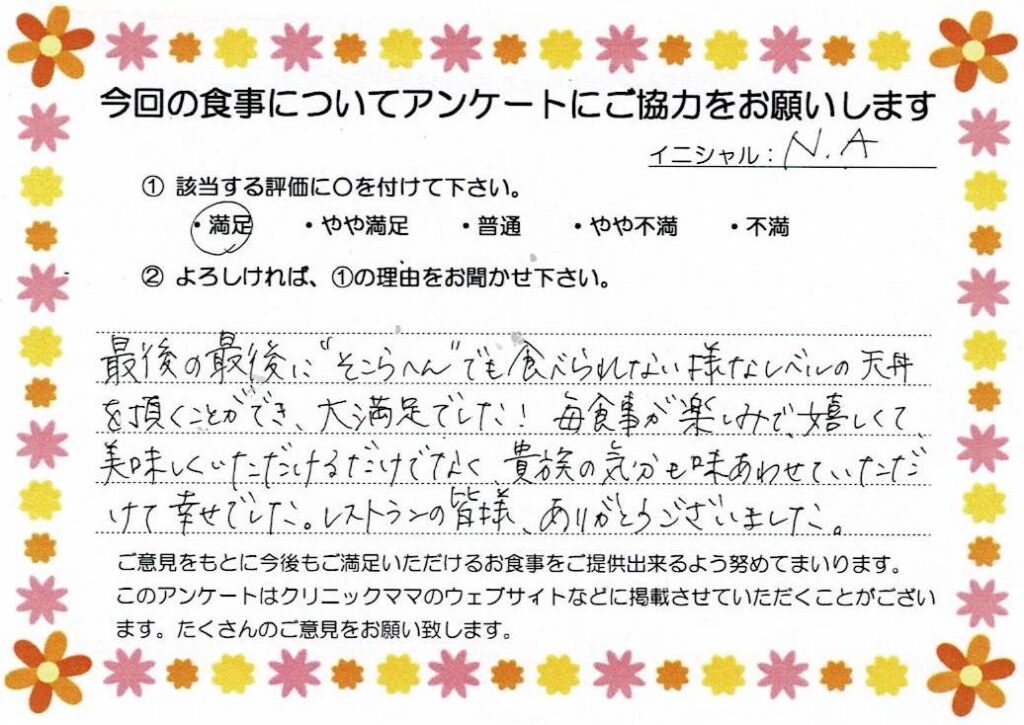 今回の食事についてアンケートにご協力をお願いします
イニシャル：N.A
① 該当する評価に〇を付けて下さい。
・満足 ・やや満足 ・普通 ・やや不満 ・不満
② よろしければ、①の理由をお聞かせ下さい。
最後の最後に“そこらへん”でも食べられない様なレベルの天丼
を頂くことができ、大満足でした！毎食事が楽しみで、嬉しくて、
美味しくいただけるだけでなく、貴族の気分も味あわせていただ
けて幸せでした。レストランの皆様、ありがとうございました。
ご意見をもとに今後もご満足いただけるお食事をご提供出来るよう努めてまいります。
このアンケートはクリニックママのウェブサイトなどに掲載させていただくことがござい
ます。たくさんのご意見をお願い致します。